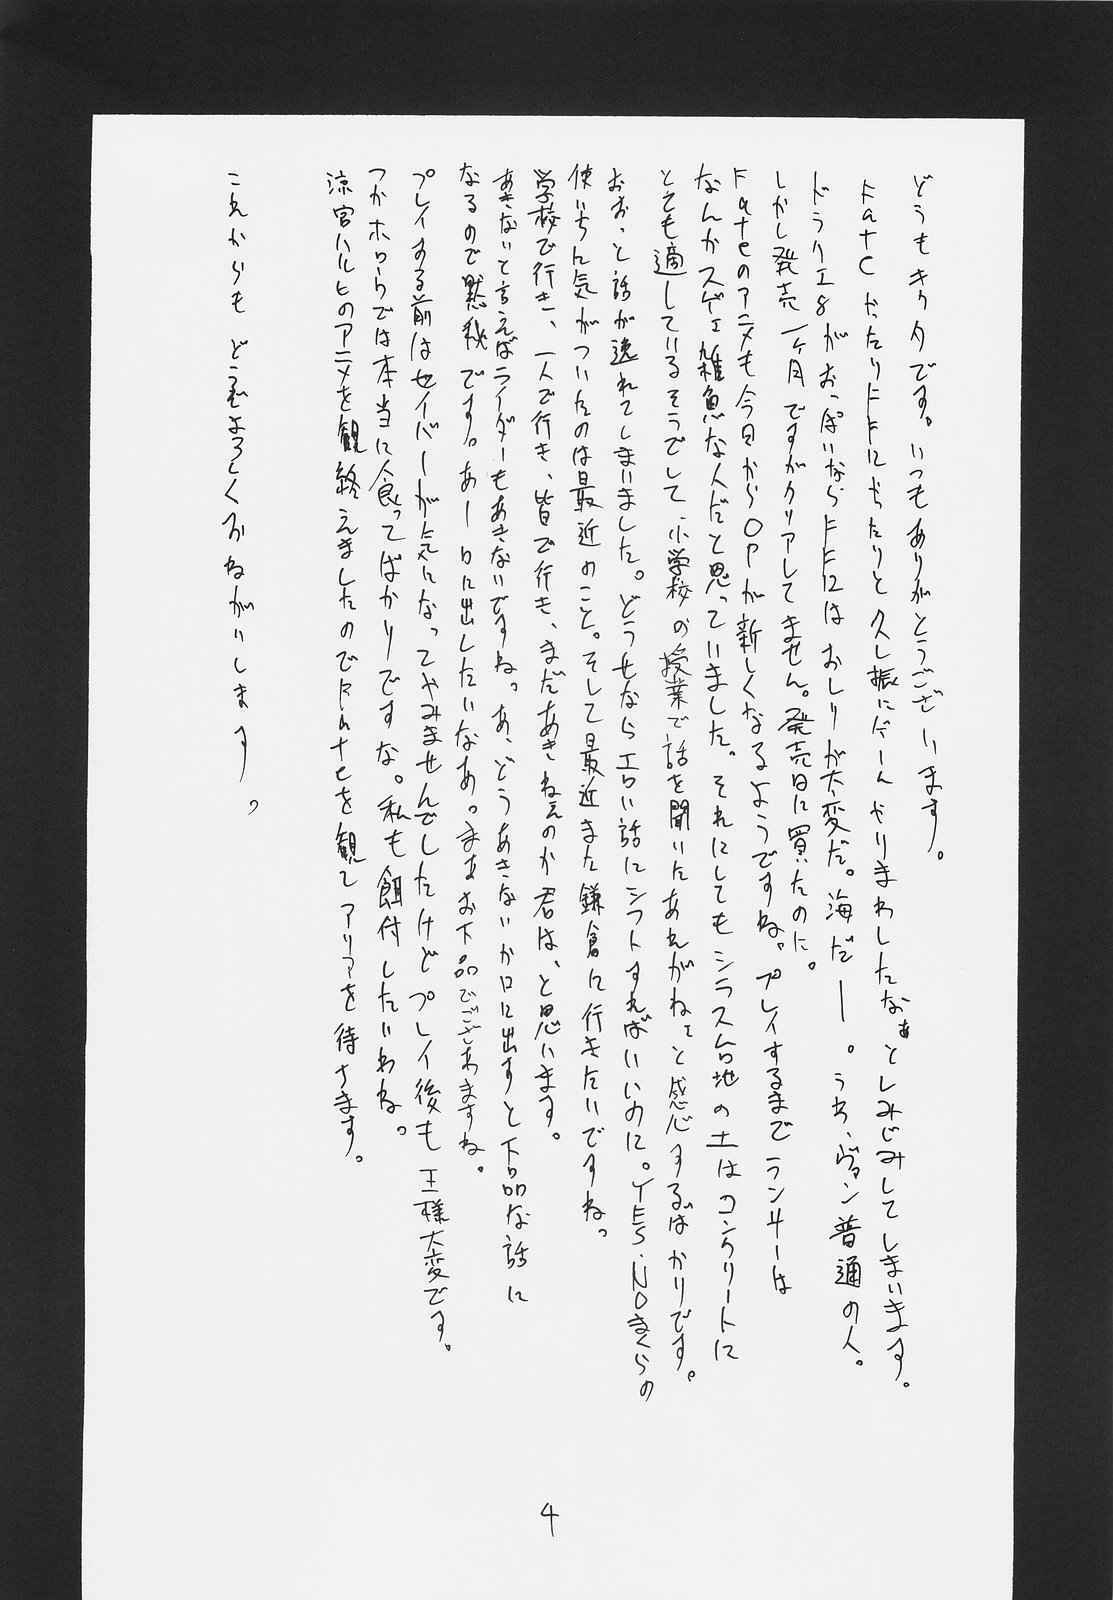 どうもキクタです。いつもありがとうございます。
Fateやったり FFにやったりと久し振にゲームやりまわしたなぁとしみじみしてしまいます。
ドラクエ8がおっぱいならFF12はおしりが大変だ。海だー。うわ、ヴァン普通の人。
しかし発売一ヶ月ですがクリアしてません。発売日に買いたのに。
Fateのアニメも今日からOPが新しくなるようですね。プレイするまでランサーは
なんかスゲェ雑魚な人だと思っていました。それにしてもシラス台地の土はコンクリートに
とても適しているそうでして、小学校の授業で話を聞いたあれがねぇと感心するばかりです。
おおっと話が逸れてしまいました。どうせならエロい話にシフトすればいいのに。YES・NOまくらの
使いみちに気がついたのは最近のこと。そして最近また鎌倉に行きたいですね。
学校で行き、一人で行き、皆で行き、まだあきねぇのか君は、と思います。
あきないと言えばライダーもあきないですね。あ、どうあきないか口に出すと下品な話に
なるので黙秘です。あー口に出したいなあ。まあお下品でございますね。
プレイする前はセイバーが気になってやみませんでしたけどプレイ後も王様大変です。
つかホロウでは本当に食ってばかりですな。私も餌付したいわね。
涼宮ハルヒのアニメを観終えましたのでFateを観てアリアを待ちます。
これからもどうぞよろしくおねがいします。
4